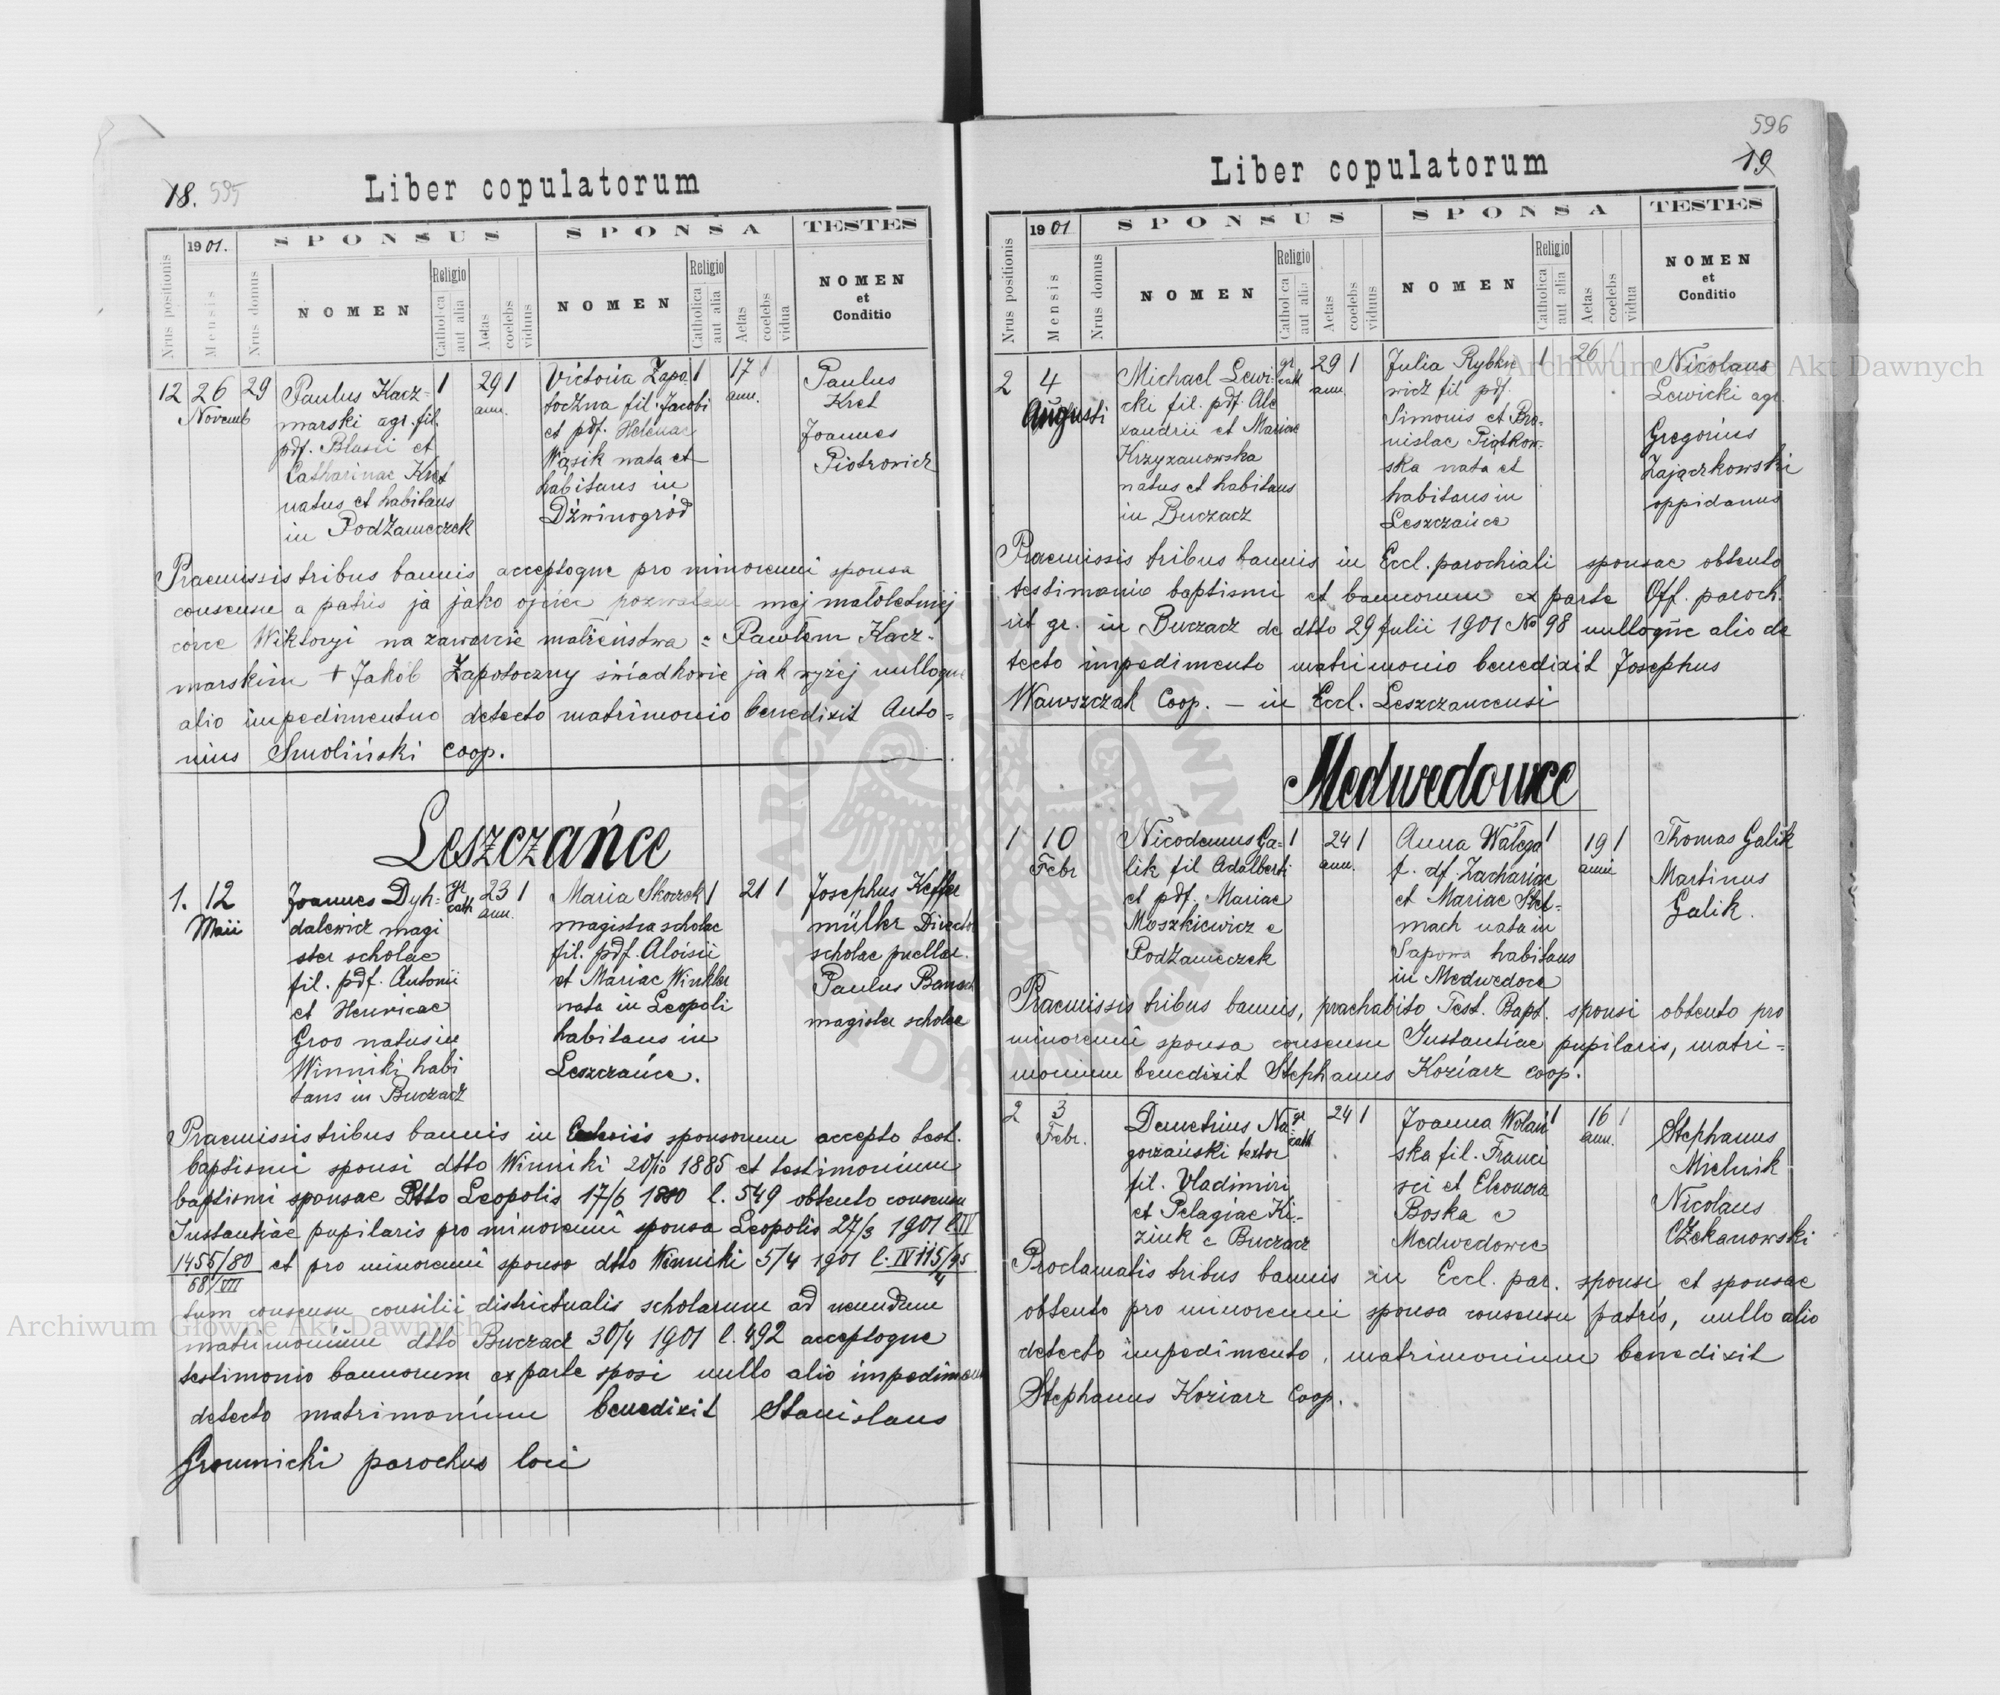 18. 595
Liber copulatorum
1901.
SPONSUS
SPONSA
TESTES
Nrus positionis
Mensis
Nrus domus
NOMEN
Religio
Catholica
aut alia
Aetas
coelebs
viduus
NOMEN
Religio
Catholica
aut alia
Aetas
coelebs
vidua
NOMEN
et
Conditio
12 26 29 Paulus Kacz- 1 29 1 Victoria Zapo- 1 17 1 Paulus
Novemb marski agr. fil. ann. toczna fil. Jacobi ann. Kret
pdf. Blasii et et pdf. Helenae Joannes
Catharinae Kret Wąsik nata et Piotrowicz
natus et habitans habitans in
in Podzameczek Dźwinogród
Praemissis tribus bannis acceptoque pro minorenni sponsa
consensu a patris ja jako ojciec pozwalam mej małoletniej
córce Wiktoryi na zawarcie małżeństwa z Pawłem Kacz-
marskim + Jakób Zapotoczny świadkowie jak wyżej nulloque
alio impedimentuo detecto matrimonio benedixit Anto-
nius Smoliński coop.
Leszczańce
1. 12 Joannes Dyh- gr 23 1 Maria Skoczek 1 21 1 Josephus Keffer
Maii dalewicz magi cath ann. magistra scholae müller Director
ster scholae fil. pdf. Aloisii scholae puellar.
fil. pdf. Antonii et Mariae Winkler Paulus Banach
et Henricae nata in Leopoli magister scholae
Groo natus in habitans in
Winniki habi Leszczańce.
tans in Buczacz
Praemissis tribus bannis in sponsorum accepto test.
baptismi sponsi dtto Winniki 20/10 1885 et testimonium
baptismi sponsae Dtto Leopolis 17/6 1880 l. 549 obtento consensu
Instantiae pupilaris pro minorenni sponsa Leopolis 27/3 1901 l. IV
1455/80 et pro minorenni sponso dtto Winniki 5/4 1901 l. IV 115/95
68/VII 4
tum consensu consilii districtualis scholarum ad ineundum
matrimonium dtto Buczacz 30/4 1901 l. 492 acceptoque
testimonio bannorum ex parte sposi nullo alio impedimento
detecto matrimonium benedixit Stanislaus
Gromnicki parochus loci
596
19
Liber copulatorum
1901
SPONSUS
SPONSA
TESTES
Nrus positionis
Mensis
Nrus domus
NOMEN
Religio
Catholica
aut alia
Aetas
coelebs
viduus
NOMEN
Religio
Catholica
aut alia
Aetas
coelebs
vidua
NOMEN
et
Conditio
2 4 Michael Lewi- gr 29 1 Julia Rybkie 1 26 1 Nicolaus
Augusti cki fil. pdf. Ale cath ann. wicz fil pdf. Lewicki agr.
xandrii et Mariae Simonis et Bro- Gregorius
Krzyżanowska nislae Piątkow- Zajączkowski
natus et habitans ska nata et oppidanus
in Buczacz habitans in
Leszczańce
Praemissis tribus bannis in Eccl. parochiali sponsae obtento
testimonio baptismi et bannorum ex parte Off. paroch.
rit gr. in Buczacz de dtto 29 Julii 1901 No 98 nulloque alio de
tecto impedimento matrimonio benedixit Josephus
Wawszczak Coop. - in Eccl. Leszczancensi
Medwedowce
1 10 Nicodemus Ga- 1 24 1 Anna Wałęga 1 19 1 Thomas Galik
Febr lik fil Adalberti ann. f. df. Zachariae anni Martinus
et pdf. Mariae et Mariae Stel- Galik.
Moszkiewicz e mach nata in
Podzameczek Sapowa habitans
in Medwedowce
Praemissis tribus bannis, praehabito Test. Bapt. sponsi obtento pro
minorenni sponsa consensu Instantiae pupilaris, matri-
monium benedixit Stephanus Koziarz coop.
2 3 Demetrius Na gr 24 1 Joanna Wolań 1 16 1 Stephanus
Febr. gorzański textor cath ska fil. Franci ann. Mielnik
fil. Vladimiri sci et Eleonora Nicolaus
et Pelagiae Ki- Boska e Czekanowski
ziuk e Buczacz Medwedowce
Proclamatis tribus bannis in Eccl. par. sponsi et sponsae
obtento pro minorenni sponsa consensu patris, nullo alio
detecto impedimento, matrimonium benedixit
Stephanus Koziarz Coop.
Archiwum Główne Akt Dawnych
Archiwum Główne Akt Dawnych